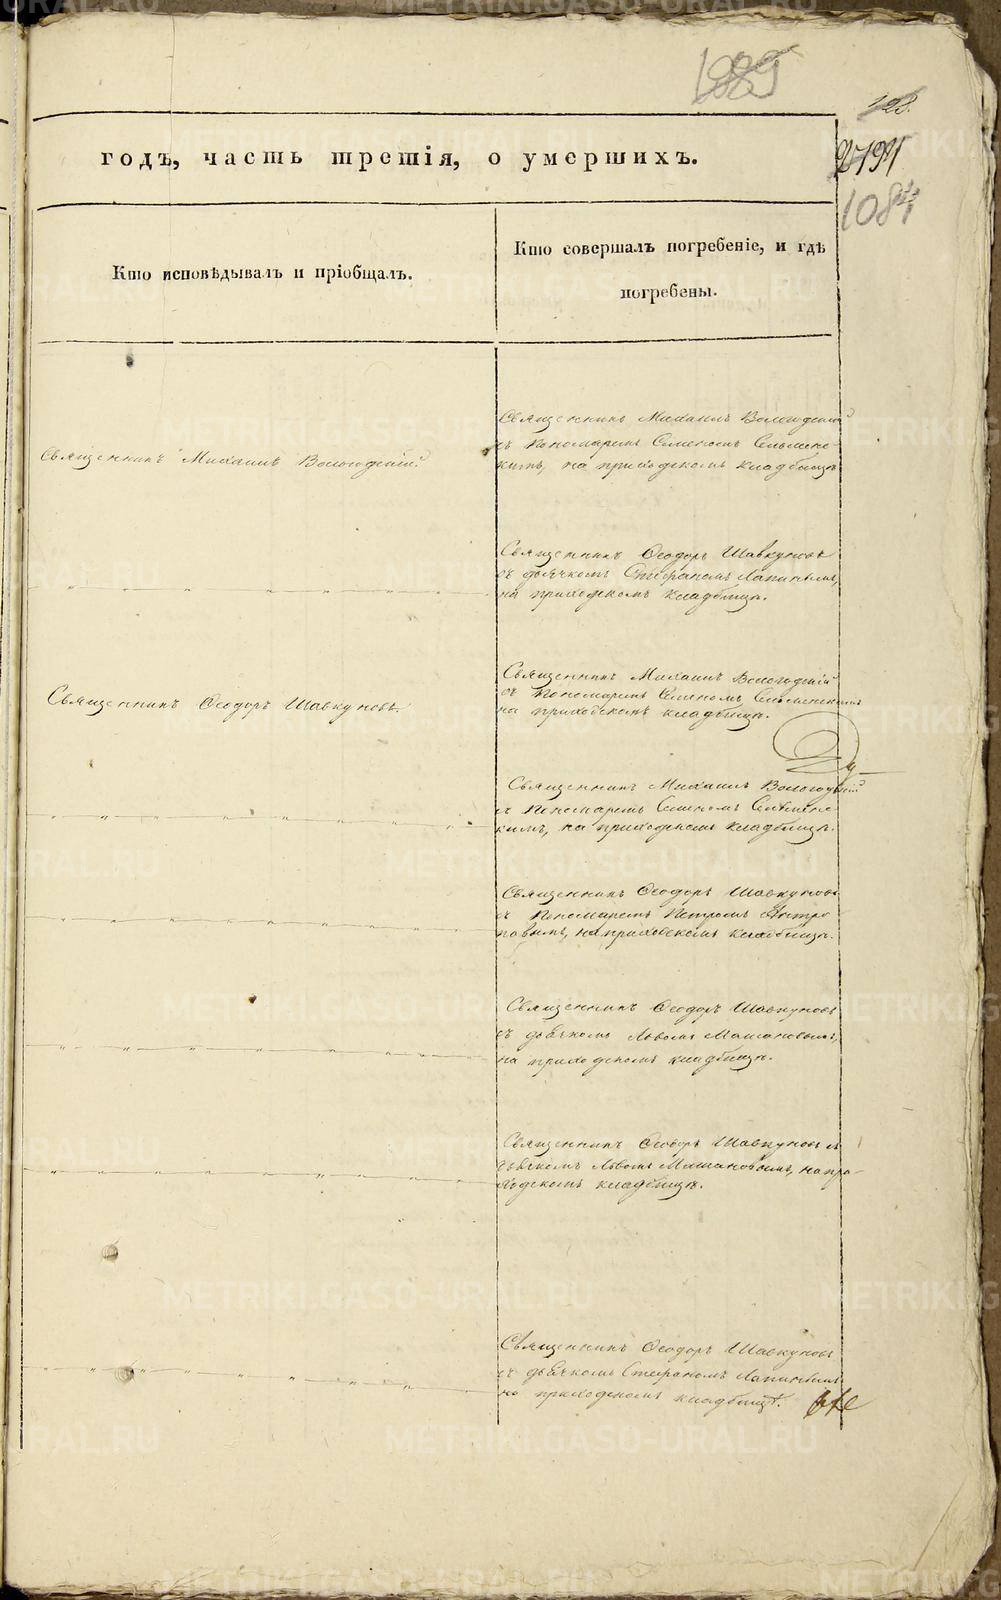 1889
128.
2799
1084
годъ, часть третія, о умершихъ.
Кто исповѣдывалъ и пріобщалъ.
Кто совершалъ погребеніе, и гдѣ
погребены.
Священникъ Михаилъ Вологодскій
Священникъ Михаилъ Вологодскій
съ пономаремъ Семеномъ Сельменс-
кимъ, на приходскомъ кладбищѣ
Священникъ Ѳеодоръ Шавкуновъ
съ дьячкомъ Стефаномъ Лапинымъ,
на приходскомъ кладбищѣ.
Священникъ Ѳеодоръ Шавкуновъ.
Священникъ Михаилъ Вологодскій
съ пономаремъ Семеномъ Сельменскимъ
на приходскомъ кладбищѣ.
Священникъ Михаилъ Вологодскій
съ пономаремъ Семеномъ Сельменс-
кимъ, на приходскомъ кладбищѣ.
Священникъ Ѳеодоръ Шавкуновъ
съ пономаремъ Петромъ Антро-
повымъ, на приходскомъ кладбищѣ.
Священникъ Ѳеодоръ Шавкуновъ
съ дьячкомъ Львомъ Машановымъ,
на приходскомъ кладбищѣ.
Священникъ Ѳеодоръ Шавкуновъ съ
дьячкомъ Львомъ Машановымъ, на при-
ходскомъ кладбищѣ.
Священникъ Ѳеодоръ Шавкуновъ
съ дьячкомъ Стефаномъ Лапинымъ
на приходскомъ кладбищѣ.
METRIKI.GASO-URAL.RU